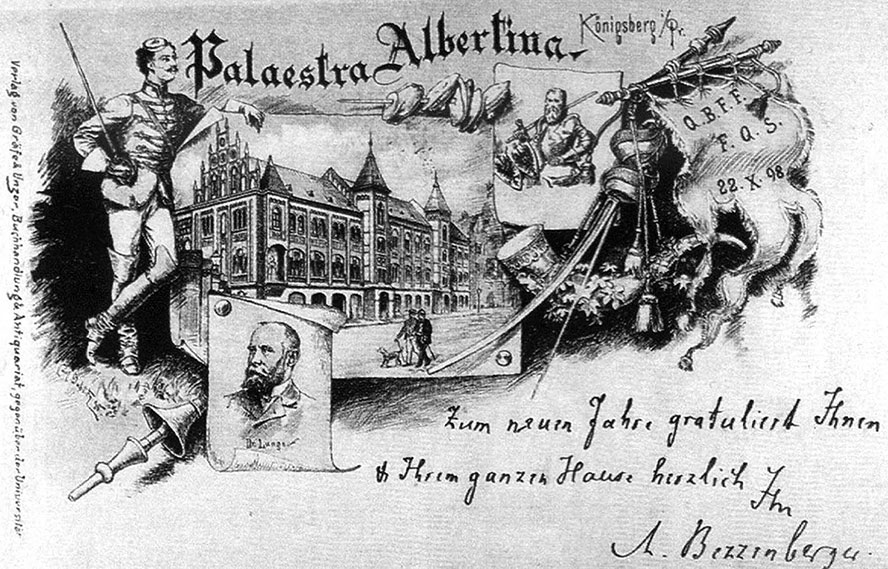 Palaestra Albertina.
Königsberg i/Pr.
Q. B. F. F.
F. Q. S.
22. X. 98
Verlag von Gräfe & Unzer, Buchhandlung & Antiquariat, gegenüber der Universität
Dr. Lange
Zum neuen Jahre gratuliert Ihnen
& Ihrem ganzen Hause herzlich
Ihr
A. Bezzenberger.